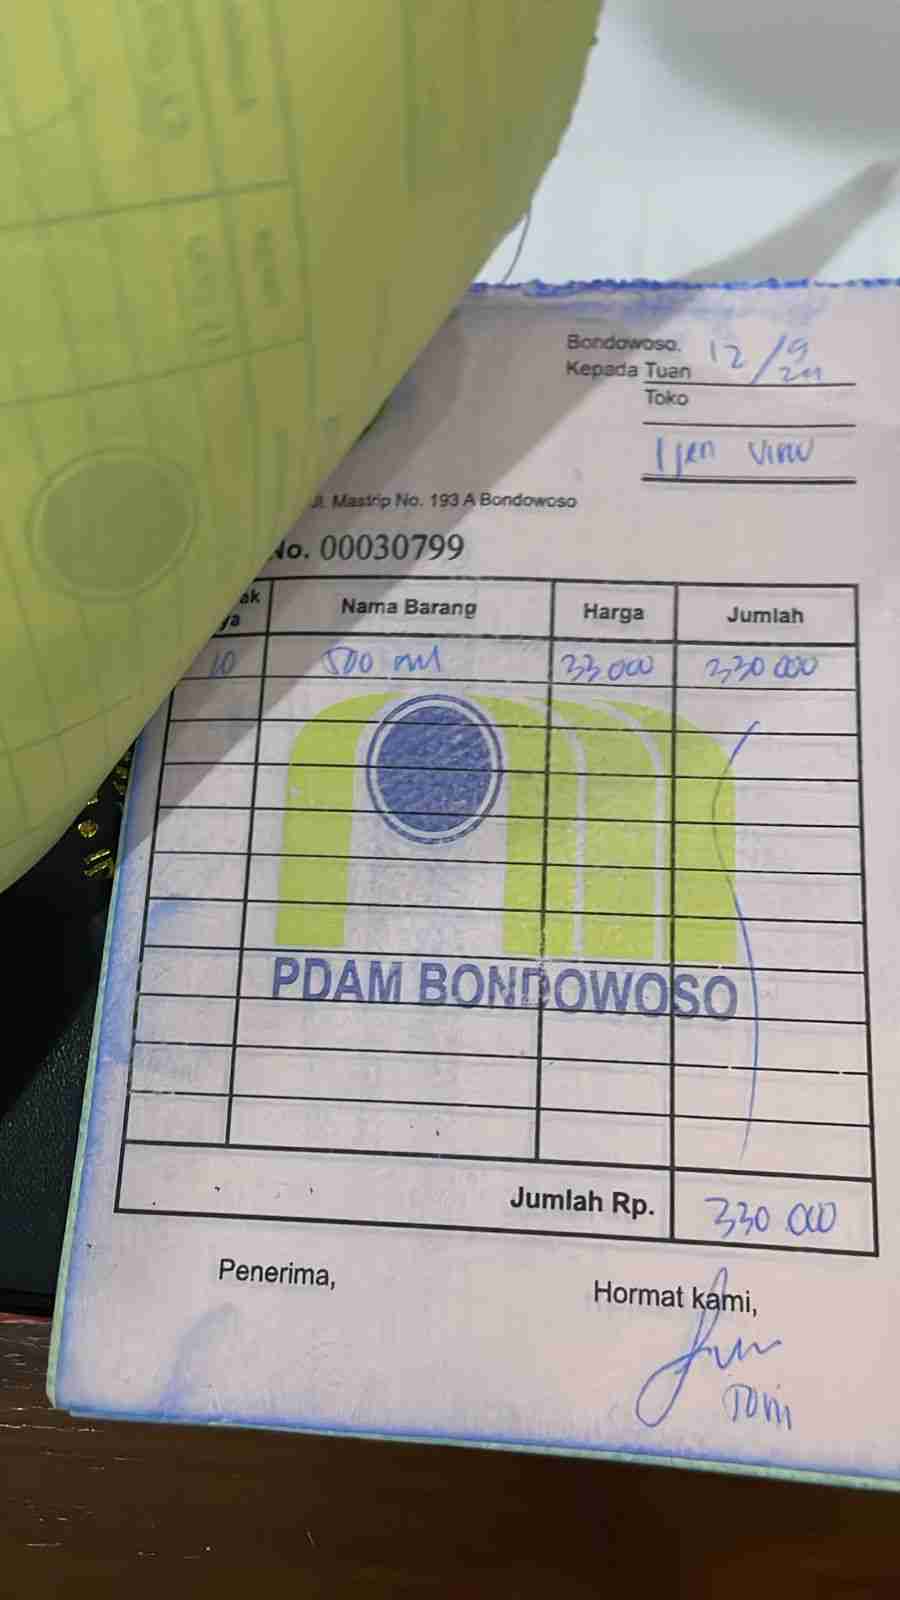 Bondowoso, 12/9
24
Kepada Tuan
Toko
Ijen View
Jl. Mastrip No. 193 A Bondowoso
No. 00030799
ak
ya Nama Barang Harga Jumlah
10 500 ml 33 000 330 000
PDAM BONDOWOSO
Jumlah Rp. 330 000
Penerima, Hormat kami,
Toni